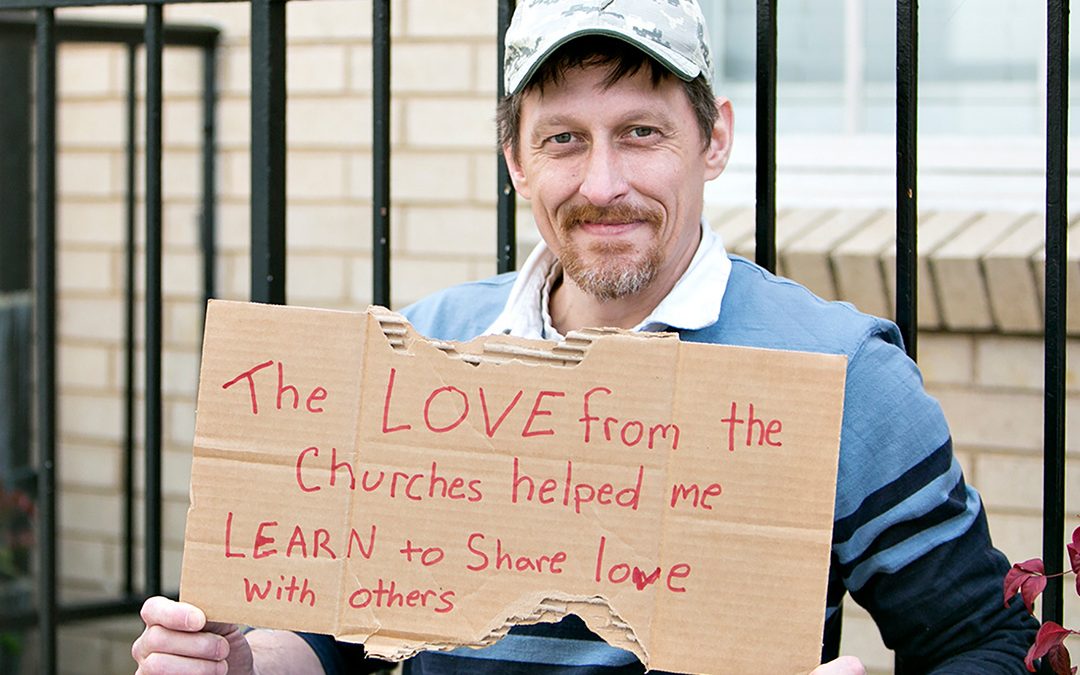 The LOVE from the
Churches helped me
LEARN to Share love
with others